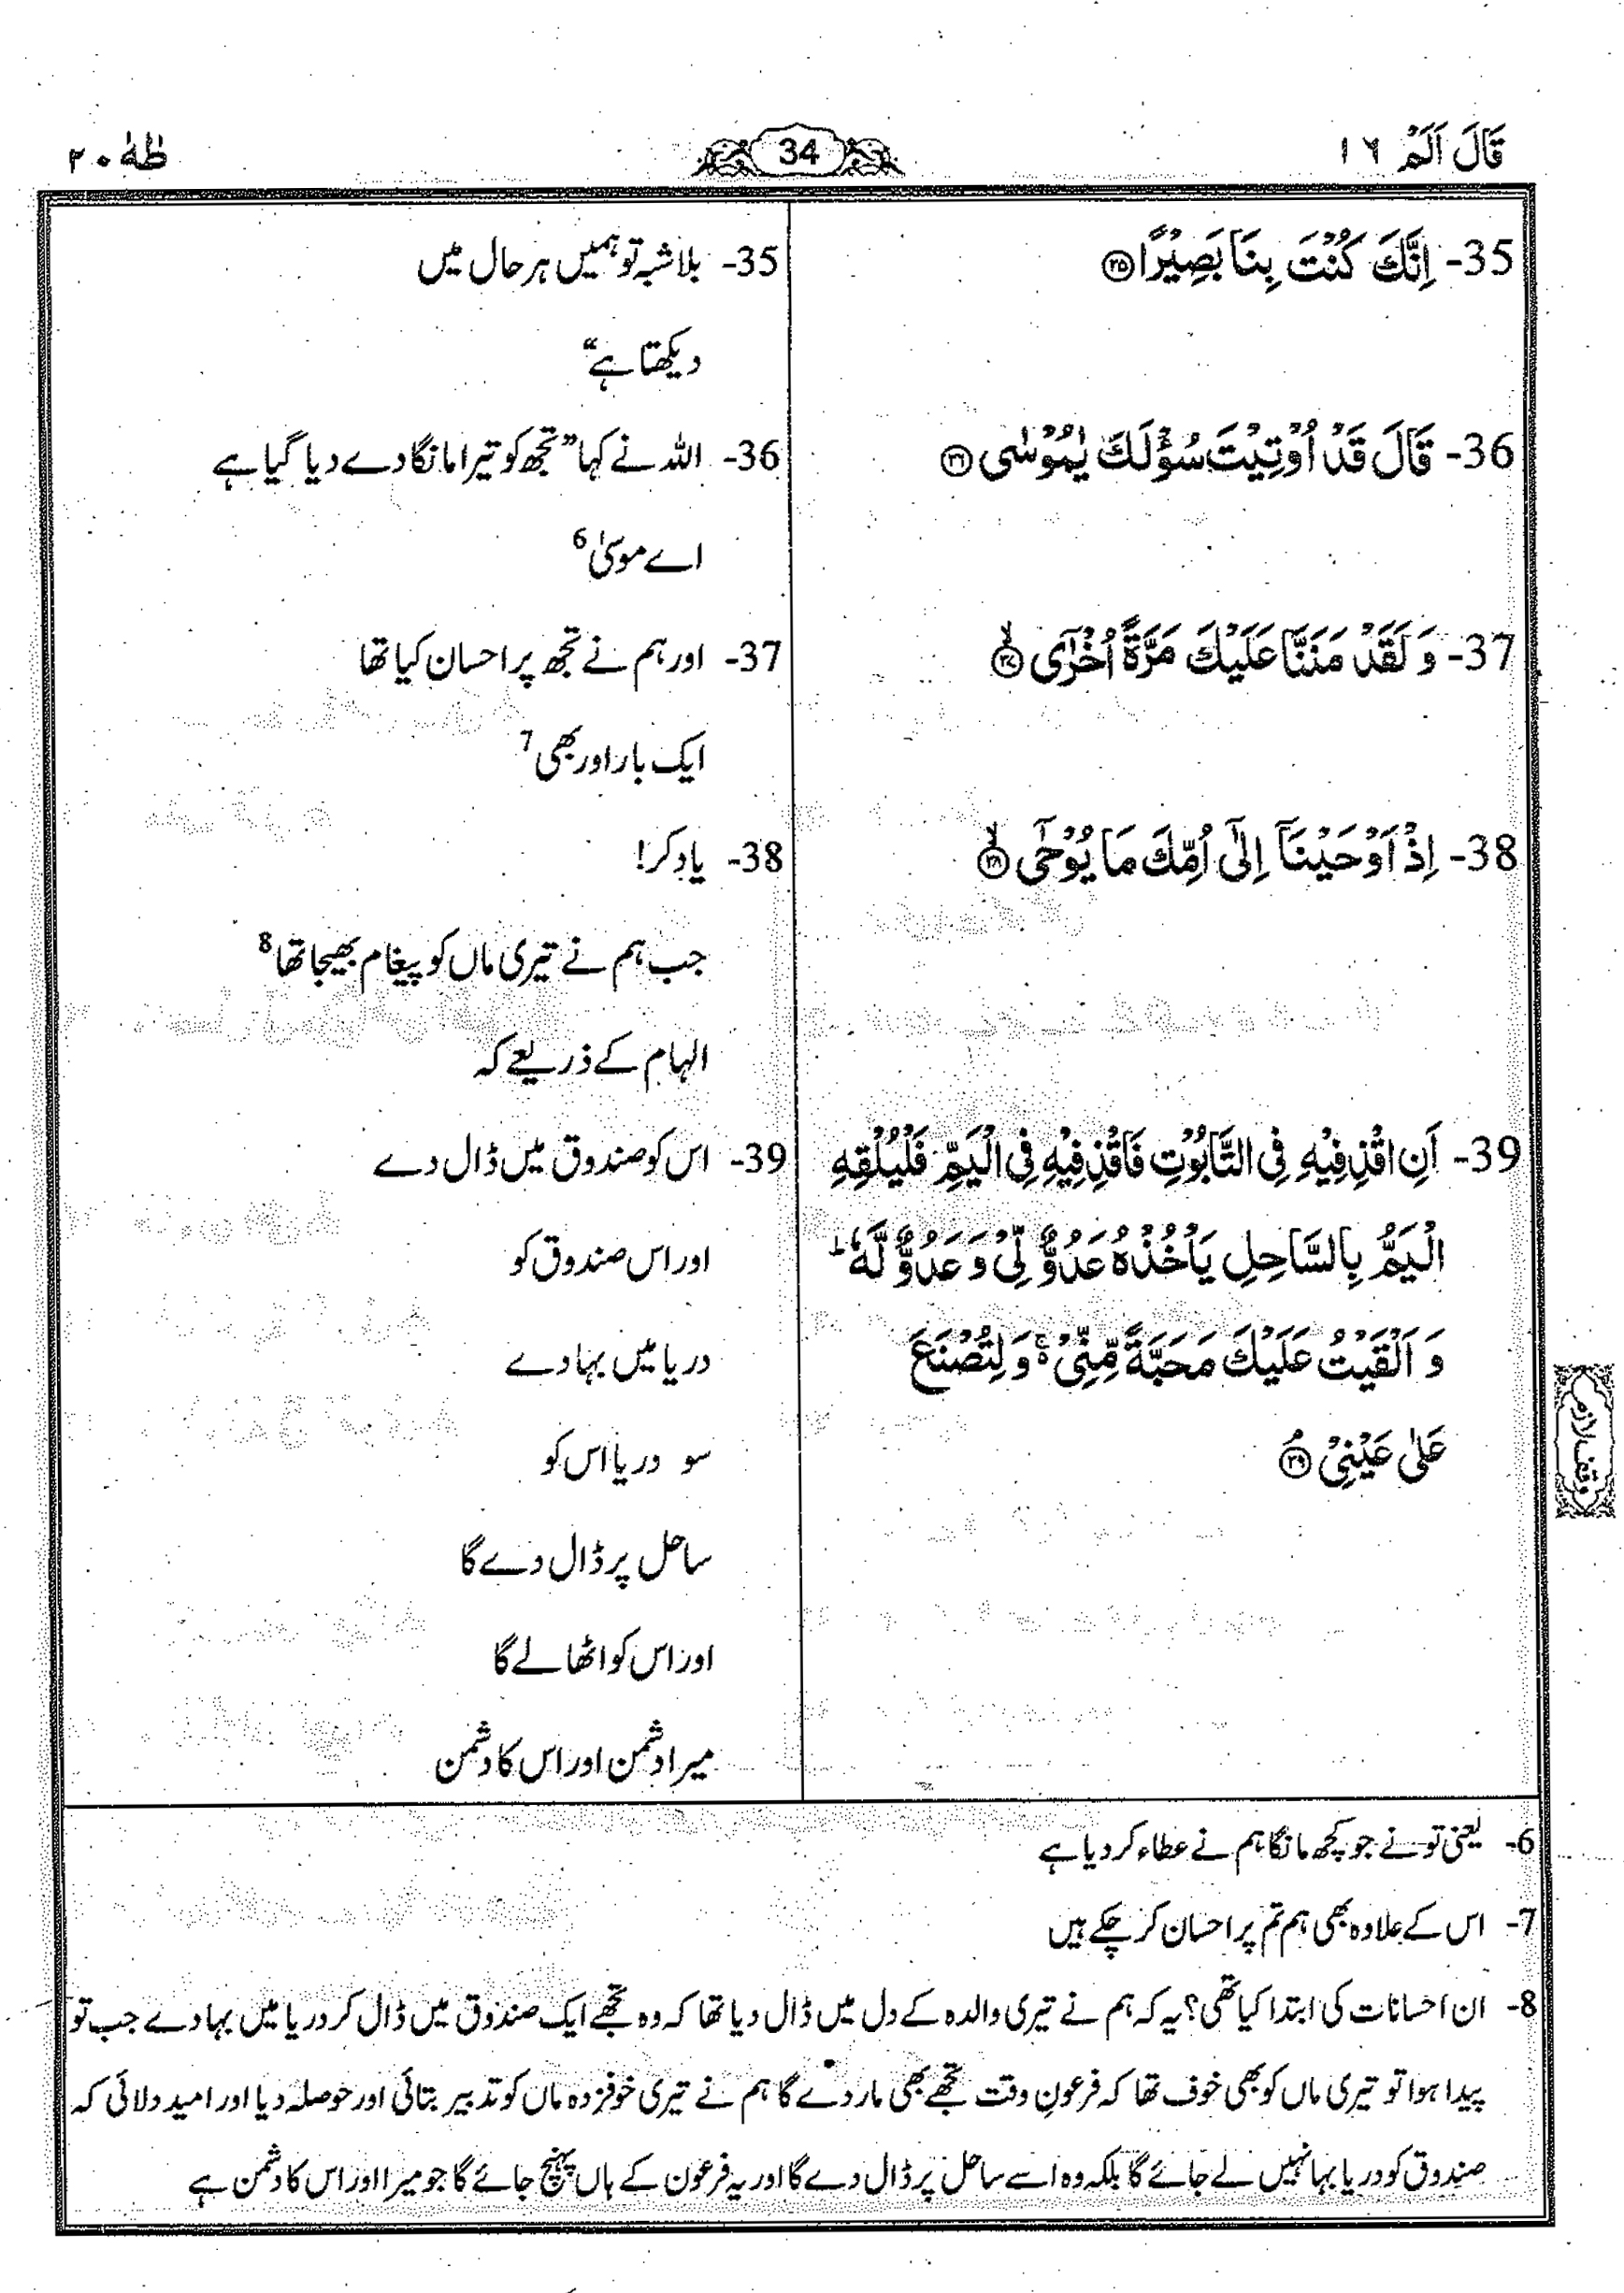 قَالَ اَلَمْ ١٦
34
طٰهٰ ٢٠
35- اِنَّكَ كُنْتَ بِنَا بَصِيْرًا ۝٣٥
35- بلاشبہ تو ہمیں ہر حال میں
دیکھتا ہے“
36- قَالَ قَدْ اُوْتِيْتَ سُؤْلَكَ يٰمُوْسٰى ۝٣٦
36- اللہ نے کہا ”تجھ کو تیرا مانگا دے دیا گیا ہے
اے موسیٰ 6
37- وَ لَقَدْ مَنَنَّا عَلَيْكَ مَرَّةً اُخْرٰٓى ۝٣٧ۙ
37- اور ہم نے تجھ پر احسان کیا تھا
ایک بار اور بھی 7
38- اِذْ اَوْحَيْنَاۤ اِلٰۤى اُمِّكَ مَا يُوْحٰۤى ۝٣٨ۙ
38- یاد کر!
جب ہم نے تیری ماں کو پیغام بھیجا تھا 8
الہام کے ذریعے کہ
39- اَنِ اقْذِفِيْهِ فِى التَّابُوْتِ فَاقْذِفِيْهِ فِى الْيَمِّ فَلْيُلْقِهِ
الْيَمُّ بِالسَّاحِلِ يَاْخُذْهُ عَدُوٌّ لِّيْ وَ عَدُوٌّ لَّهٗ ؕ
وَ اَلْقَيْتُ عَلَيْكَ مَحَبَّةً مِّنِّيْ ۚ۬ وَ لِتُصْنَعَ
عَلٰى عَيْنِيْ ۝٣٩ۘ
39- اس کو صندوق میں ڈال دے
اور اس صندوق کو
دریا میں بہا دے
سو دریا اس کو
ساحل پر ڈال دے گا
اور اس کو اٹھا لے گا
میرا دشمن اور اس کا دشمن
وقف لازم
6- یعنی تو نے جو کچھ مانگا ہم نے عطاء کر دیا ہے
7- اس کے علاوہ بھی ہم تم پر احسان کر چکے ہیں
8- ان احسانات کی ابتدا کیا تھی؟ یہ کہ ہم نے تیری والدہ کے دل میں ڈال دیا تھا کہ وہ تجھے ایک صندوق میں ڈال کر دریا میں بہا دے جب تو
پیدا ہوا تو تیری ماں کو بھی خوف تھا کہ فرعونِ وقت تجھے بھی مار دے گا ہم نے تیری خوفزدہ ماں کو تدبیر بتائی اور حوصلہ دیا اور امید دلائی کہ
صندوق کو دریا بہا نہیں لے جائے گا بلکہ وہ اسے ساحل پر ڈال دے گا اور یہ فرعون کے ہاں پہنچ جائے گا جو میرا اور اس کا دشمن ہے